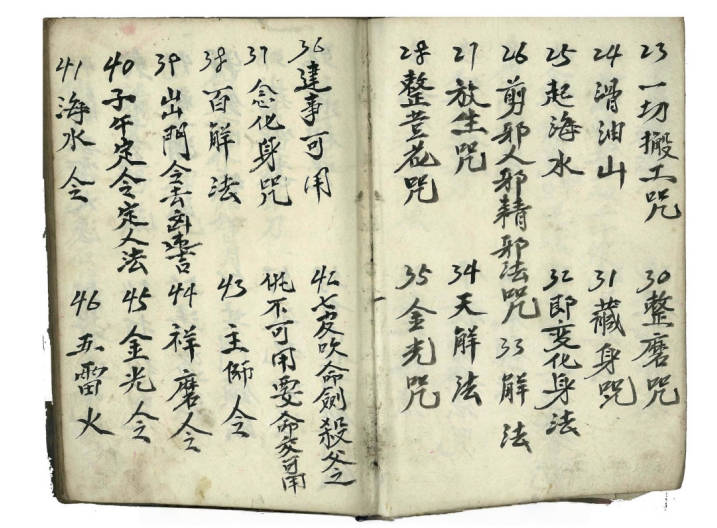 23 一切搬工咒
24 滑油山
25 起海水
26 剪邪人邪精邪法咒
27 放生咒
28 整芸花咒
30 整磨咒
31 藏身咒
32 即变化身法
33 解法
34 天解法
35 金光咒
36 建事可用
37 念化身咒
38 百解法
39 出門令去
40 子午定令定人法
41 海水令
42 七吹命劍殺
不可用要命交可用
43 主師令
44 祥磨令
45 金光令
46 五雷火